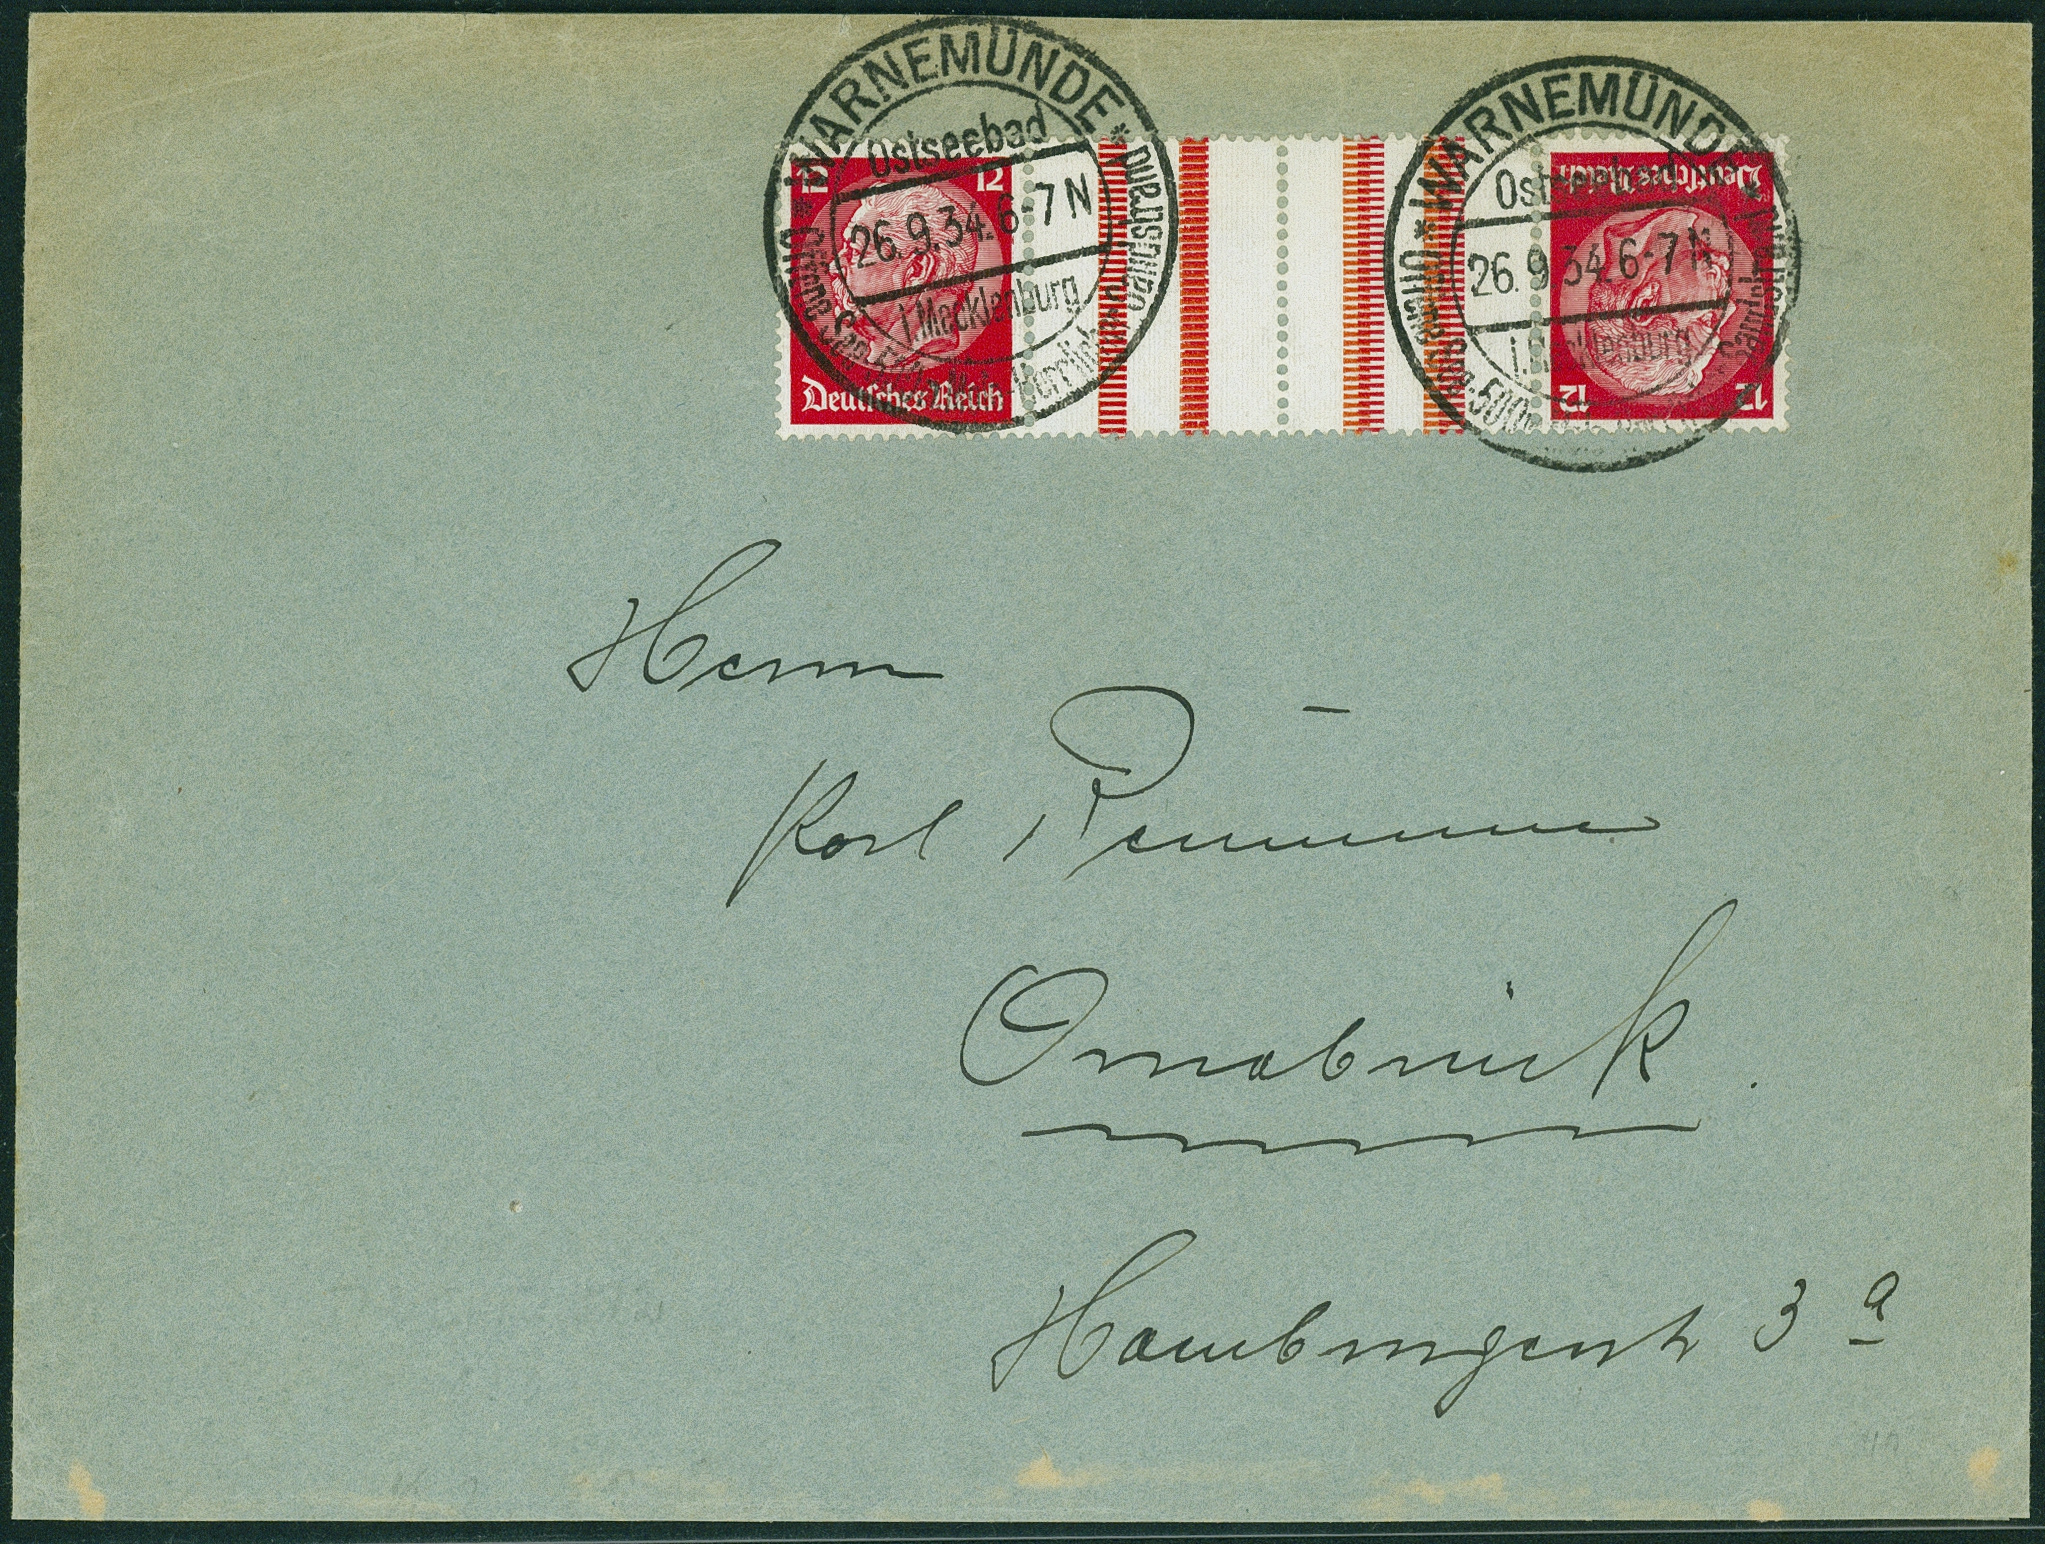 * WARNEMÜNDE *
Ostseebad
26.9.34. 6-7 N
i. Mecklenburg
Sandstrand
12 12
Deutsches Reich
* WARNEMÜNDE *
Ostseebad
26.9.34. 6-7 N
i. Mecklenburg
500
Deutsches Reich
12 12
Herrn
Karl
Osnabrück.
Hamburgerstr 3 a